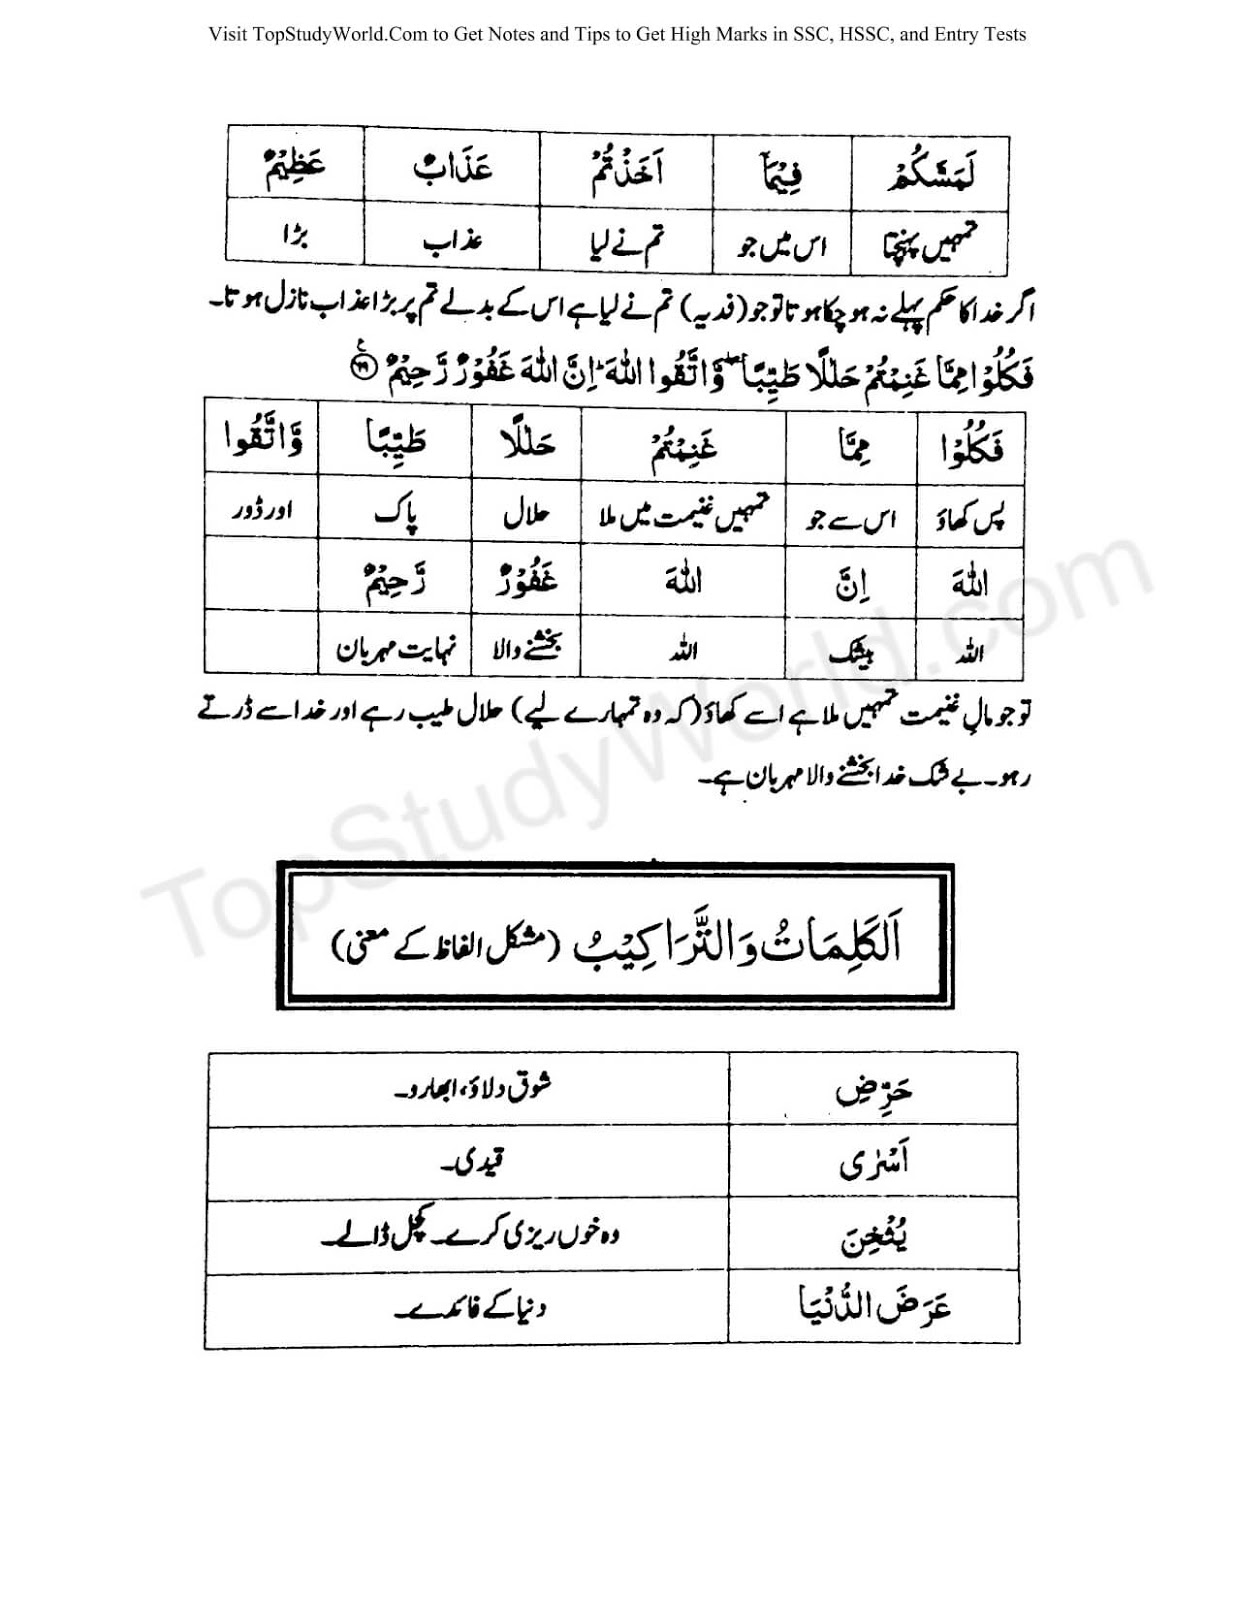 Visit TopStudyWorld.Com to Get Notes and Tips to Get High Marks in SSC, HSSC, and Entry Tests
لَمَسَّكُمْ فِيْمَآ اَخَذْتُمْ عَذَابٌ عَظِيْمٌ
تمہیں پہنچتا اس میں جو تم نے لیا عذاب بڑا
اگر خدا کا حکم پہلے نہ ہوچکا ہوتا تو جو (فدیہ) تم نے لیا ہے اس کے بدلے تم پر بڑا عذاب نازل ہوتا۔
فَكُلُوْا مِمَّا غَنِمْتُمْ حَلٰلًا طَيِّبًا ۖ وَّاتَّقُوا اللّٰهَ ؕ اِنَّ اللّٰهَ غَفُوْرٌ رَّحِيْمٌ ﴿۶۹﴾
فَكُلُوْا مِمَّا غَنِمْتُمْ حَلٰلًا طَيِّبًا وَّاتَّقُوا
پس کھاؤ اس سے جو تمہیں غنیمت میں ملا حلال پاک اور ڈور
اللّٰهَ اِنَّ اللّٰهَ غَفُوْرٌ رَّحِيْمٌ
اللہ بیشک اللہ بخشنے والا نہایت مہربان
تو جو مالِ غنیمت تمہیں ملا ہے اسے کھاؤ (کہ وہ تمہارے لیے) حلال طیب رہے اور خدا سے ڈرتے
رہو۔ بے شک خدا بخشنے والا مہربان ہے۔
TopStudyWorld.com
اَلْكَلِمَاتُ وَالتَّرَاكِيْبُ (مشکل الفاظ کے معنی)
حَرِّضِ شوق دلاؤ، ابھارو۔
اَسْرٰى قیدی۔
يُثْخِنَ وہ خوں ریزی کرے۔ کچل ڈالے۔
عَرَضَ الدُّنْيَا دنیا کے فائدے۔